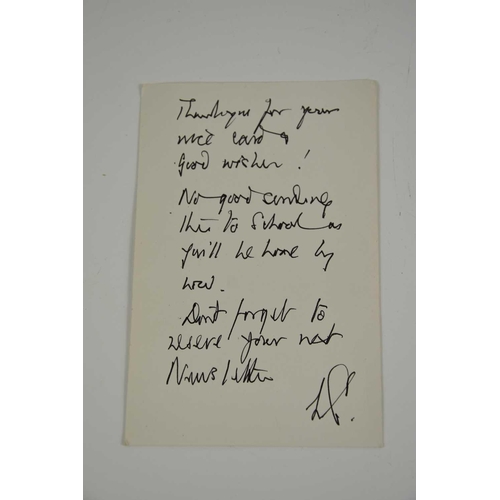 Thankyou for your
nice card &
Good wishes!
No good sending
this to School as
you'll be home by
now.
Don't forget to
reserve your next
Newsletter